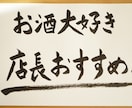 お酒大好き
店長おすすめ